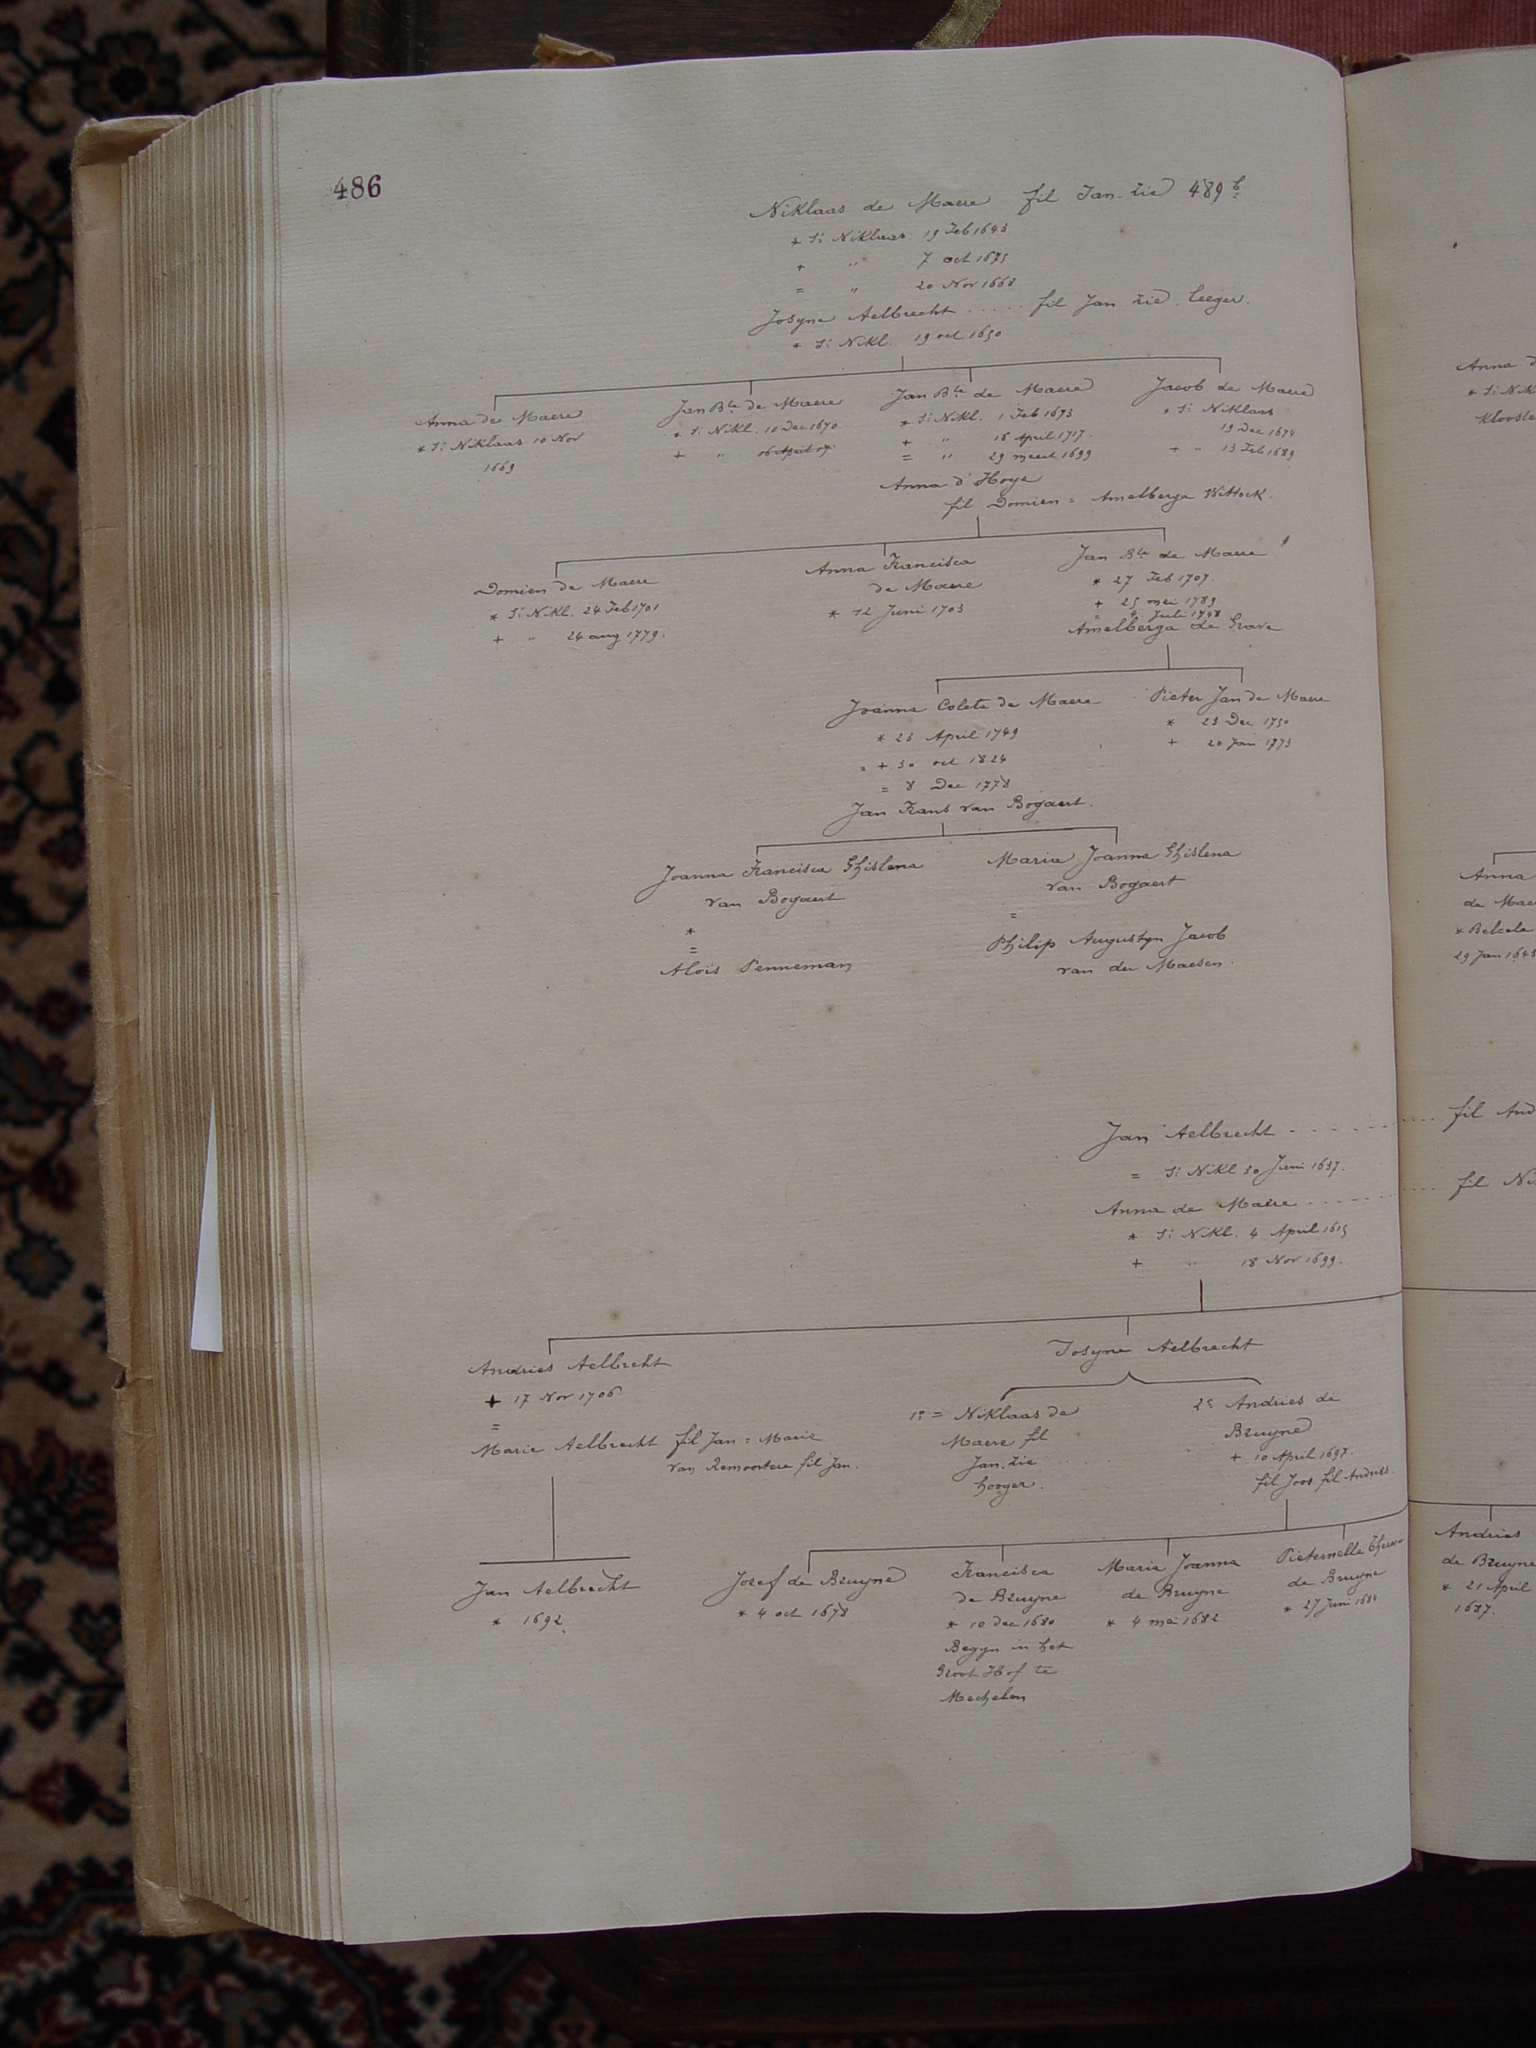 486
Niklaas de Maere fil Jan. zie 489 b.
+ St Niklaas 19 Feb 1643
+ " 7 oct 1675
= " 20 Nov 1668
Josyne Aelbrecht ..... fil Jan zie leeger.
* St Nikl. 19 oct 1650
Anna de Maere
* St Niklaas 10 Nov
1669
Jan Bte de Maere
* St Nikl. 10 Dec 1670
+ "
Jan Bte de Maere
* St Nikl. 1 Feb 1673
+ " 18 April 1717.
= " 29 meert 1699
Anna d'Hoye
fil Domien = Amelberga Wittock.
Jacob de Maere
* St Niklaas
19 Dec 1674
+ " 13 Feb 1689
Domien de Maere
* St Nikl. 24 Feb 1701
+ " 24 aug 1779.
Anna Francisca
de Maere
* 12 Juni 1703
Jan Bte de Maere
* 27 Feb 1707.
+ 25 mei 1789
= Juli 1748
Amelberga de Grave
Joanna Coleta de Maere
* 23 April 1749
+ 30 oct 1824
= 8 Dec 1778
Jan Frans van Bogaert.
Pieter Jan de Maere
* 23 Dec 1750
+ 20 Jan 1773
Joanna Francisca Ghislena
van Bogaert
*
=
Aloïs Penneman
Maria Joanna Ghislena
van Bogaert
=
Philip Augustyn Jacob
van der Maesen.
Jan Aelbrecht ..... fil And
= St Nikl 30 Juni 1637.
Anna de Maere ..... fil Ni
* St Nikl. 4 April 1615
+ " 18 Nov 1699.
Andries Aelbrecht
+ 17 Nov 1706
=
Marie Aelbrecht fil Jan = Marie
van Remoortere fil Jan.
Josyne Aelbrecht
1° = Niklaas de
Maere fil
Jan. zie
hooger.
2° Andries de
Bruyne
+ 10 April 1697.
fil Joos fil Andries.
Jan Aelbrecht
* 1692.
Jozef de Bruyne
* 4 oct 1678
Francisca
de Bruyne
* 10 dec 1680
Begyn in het
Groot Hof te
Mechelen
Maria Joanna
de Bruyne
* 4 mei 1682
Pieternelle
de Bruyne
* 27 Juni 1684
Anna d
* St Nik
Klooste
Anna
de Mae
* Belcele
29 Jan 1645
Andries
de Bruyne
* 21 April
1687.